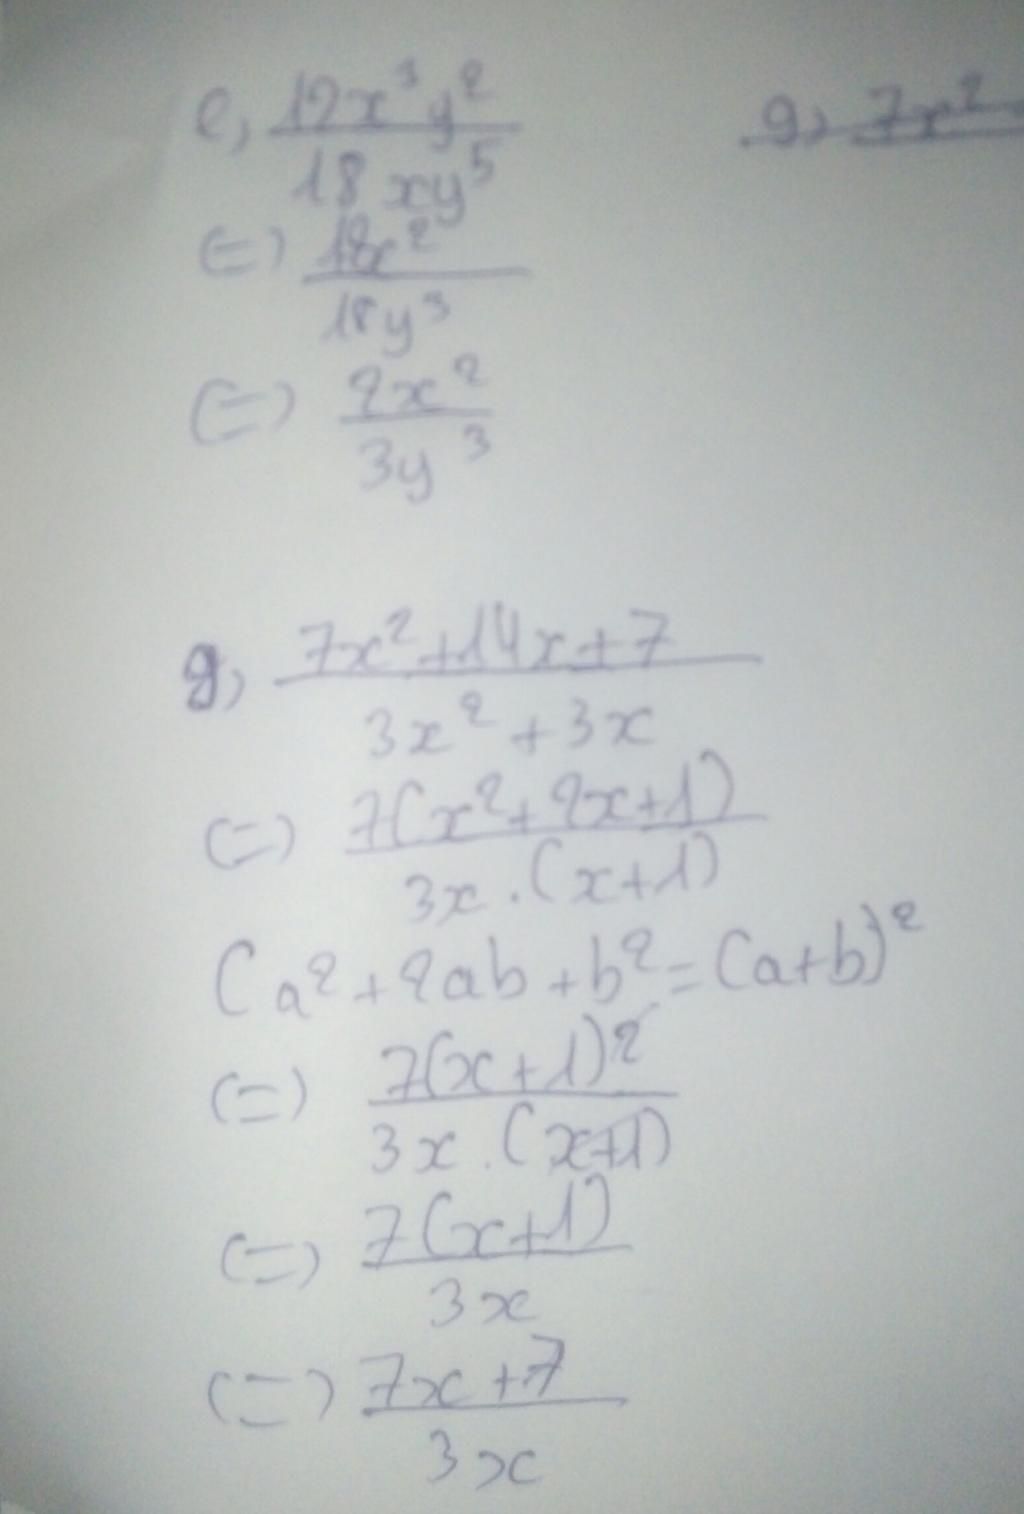 e, 12x³y² / 18xy⁵
(=) 12x² / 18y³
(=) 2x² / 3y³
g, 7x²
g, 7x²+14x+7 / 3x²+3x
(=) 7(x²+2x+1) / 3x.(x+1)
(a²+2ab+b²=(a+b)²
(=) 7(x+1)² / 3x.(x+1)
(=) 7(x+1) / 3x
(=) 7x+7 / 3x